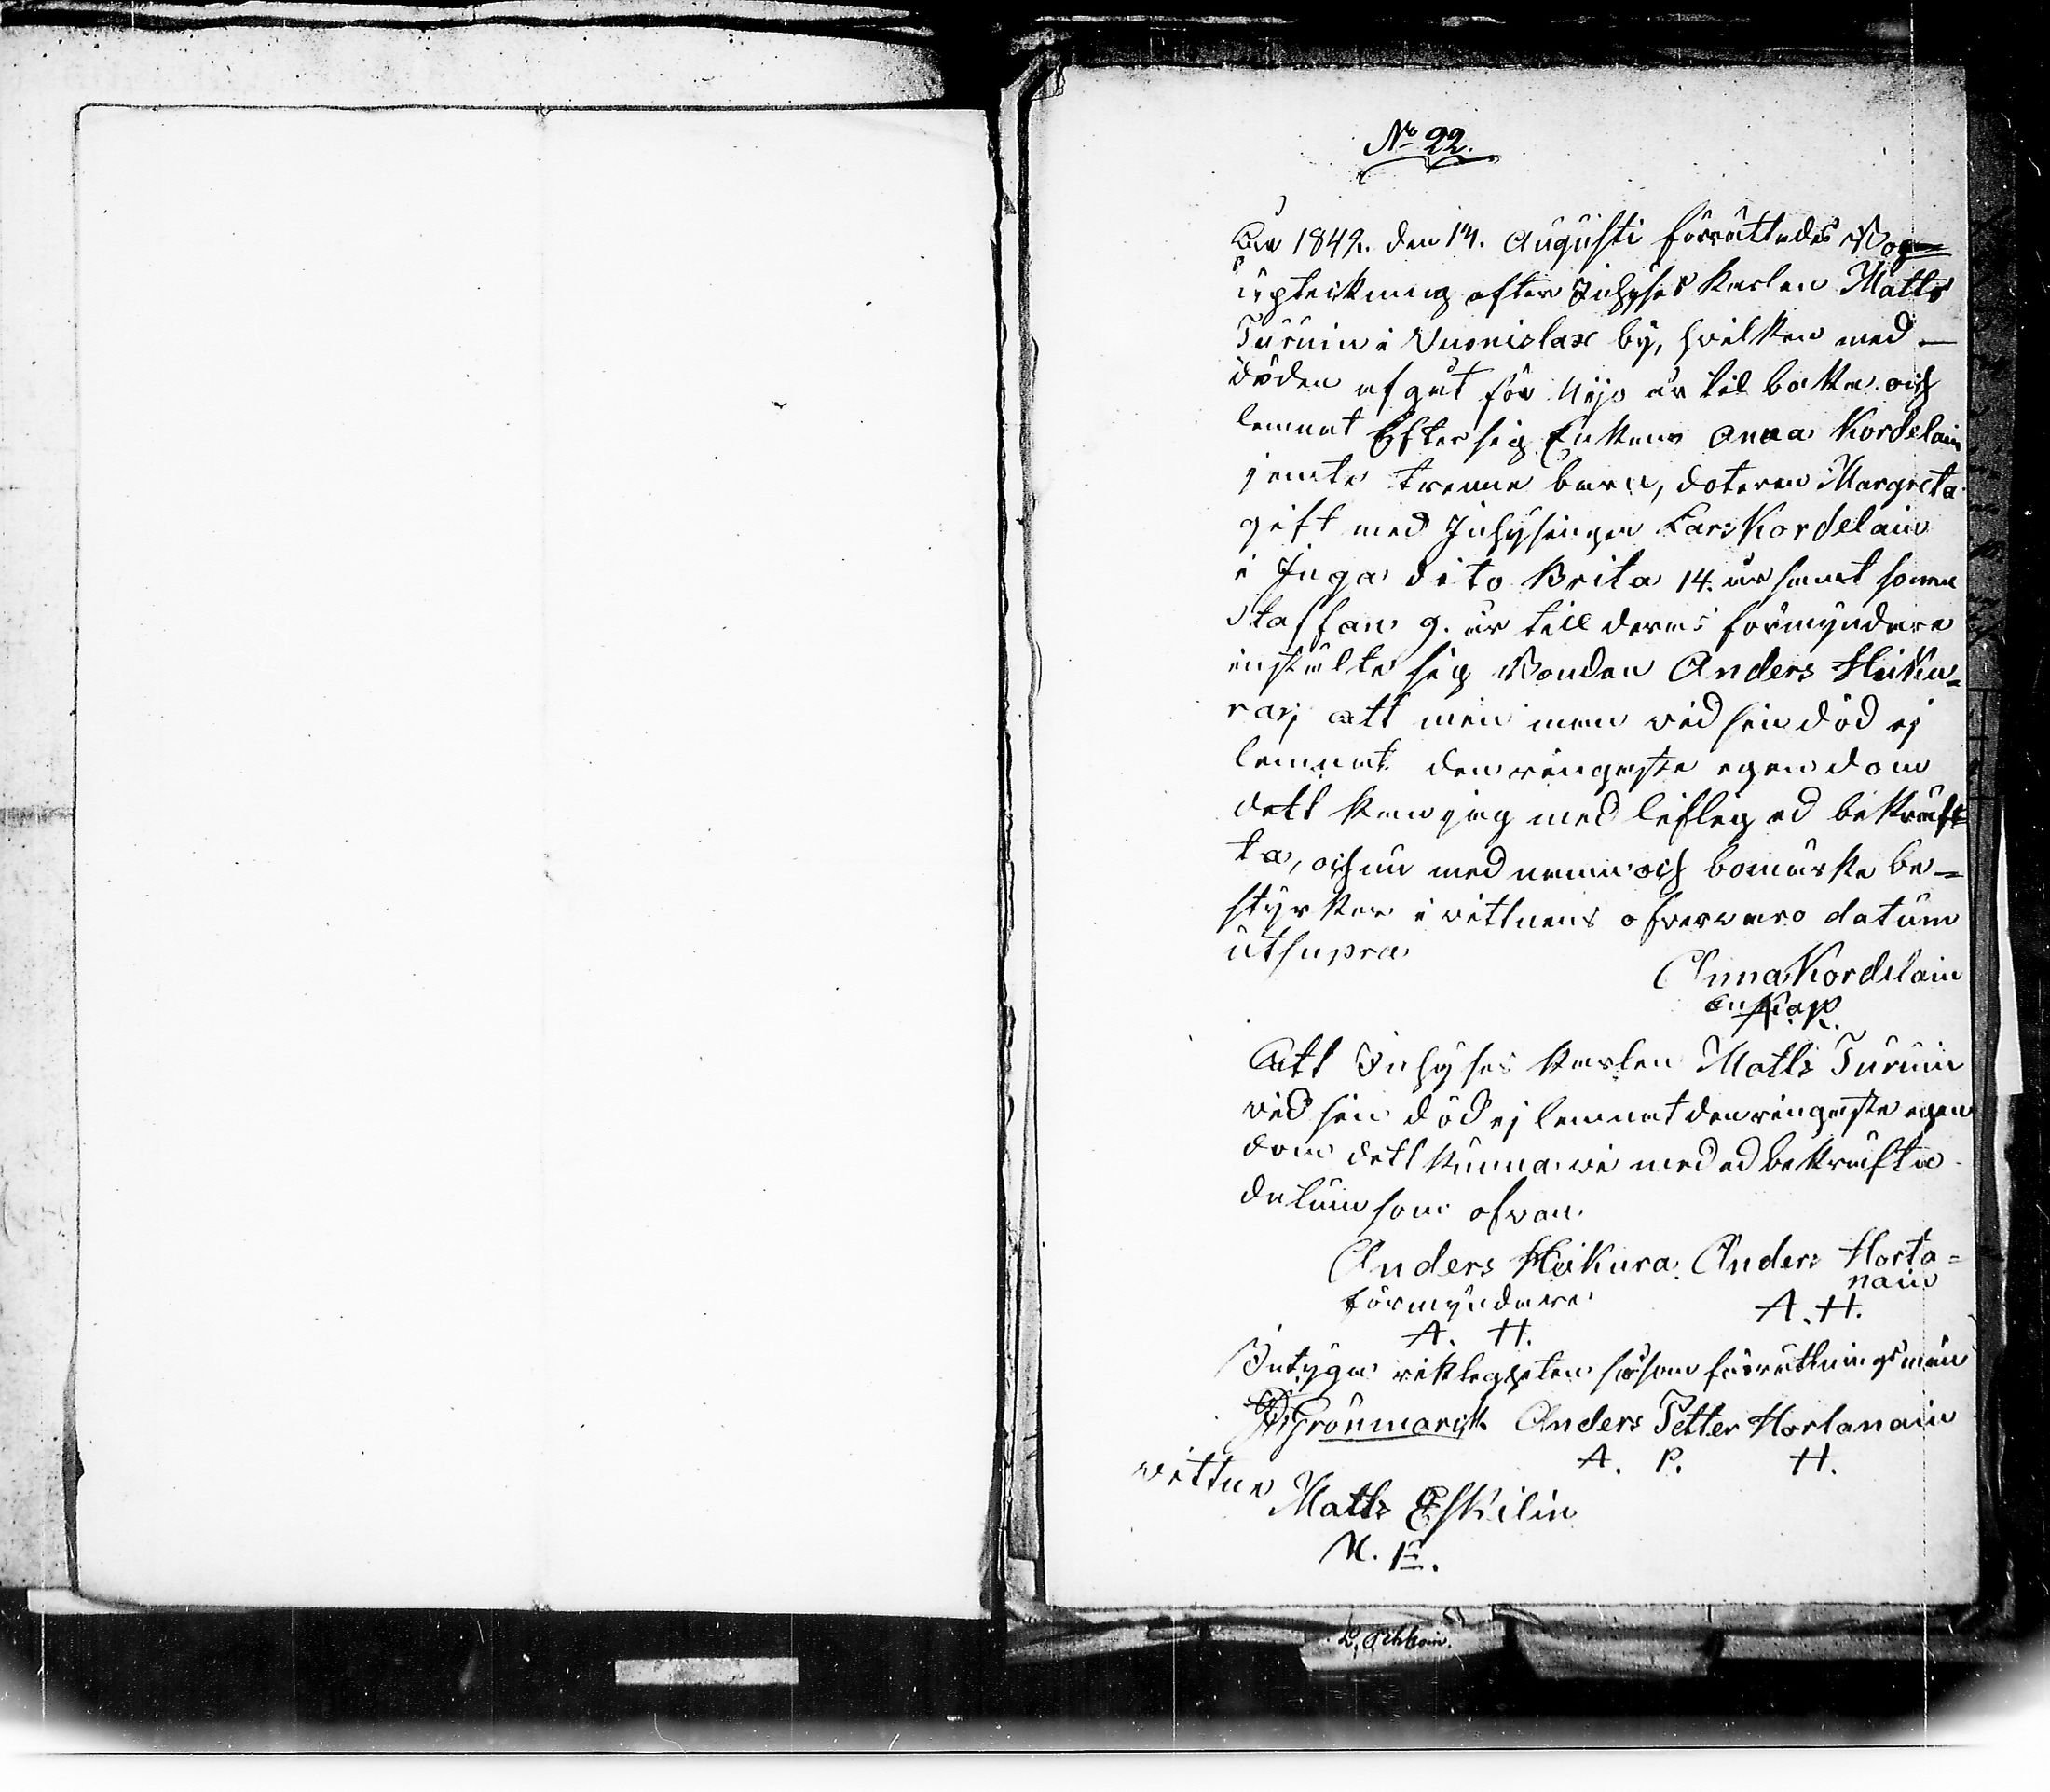 No 22.
År 1849. den 14. Augusti förrättades Bop=
upteckning efter Inhyses karlen Matts
Turuin i Vuonislax by, hvilken med
döden afgåt för nijo år tilbacka och
lemnat Efter sig Enkan Anna Kordelain
jemte trenne barn, doteren Margreta
gift med Inhysingen Lars Kordelain
i Inga dito Brita 14. år samt sonen
Staffan 9. år till deras förmyndare
instälte sig Bonden Anders Hiku=
rai; att min man vid sin död ej
lemnat den ringaste egendom
dett kan jag med liflig ed bekräft
ta, och nu med namn och bomärke be=
styrker i vittnens öfvervaro datum
utsupra
Anna Kordelain
Enka
Att Inhyses karlen Matts Turuin
vid sin död ej lemnat den ringaste egen
dom dett kunna vi med ed bekräfta
datum som ofvan
Anders Hikura Anders Horta=
nain
förmyndare
A. H.
A. H.
Intyga riktigheten såsom förrättningsmän
Grönmarck Anders Petter Hortanain
A. P. H.
vittne
Matts Eskilin
M. E.